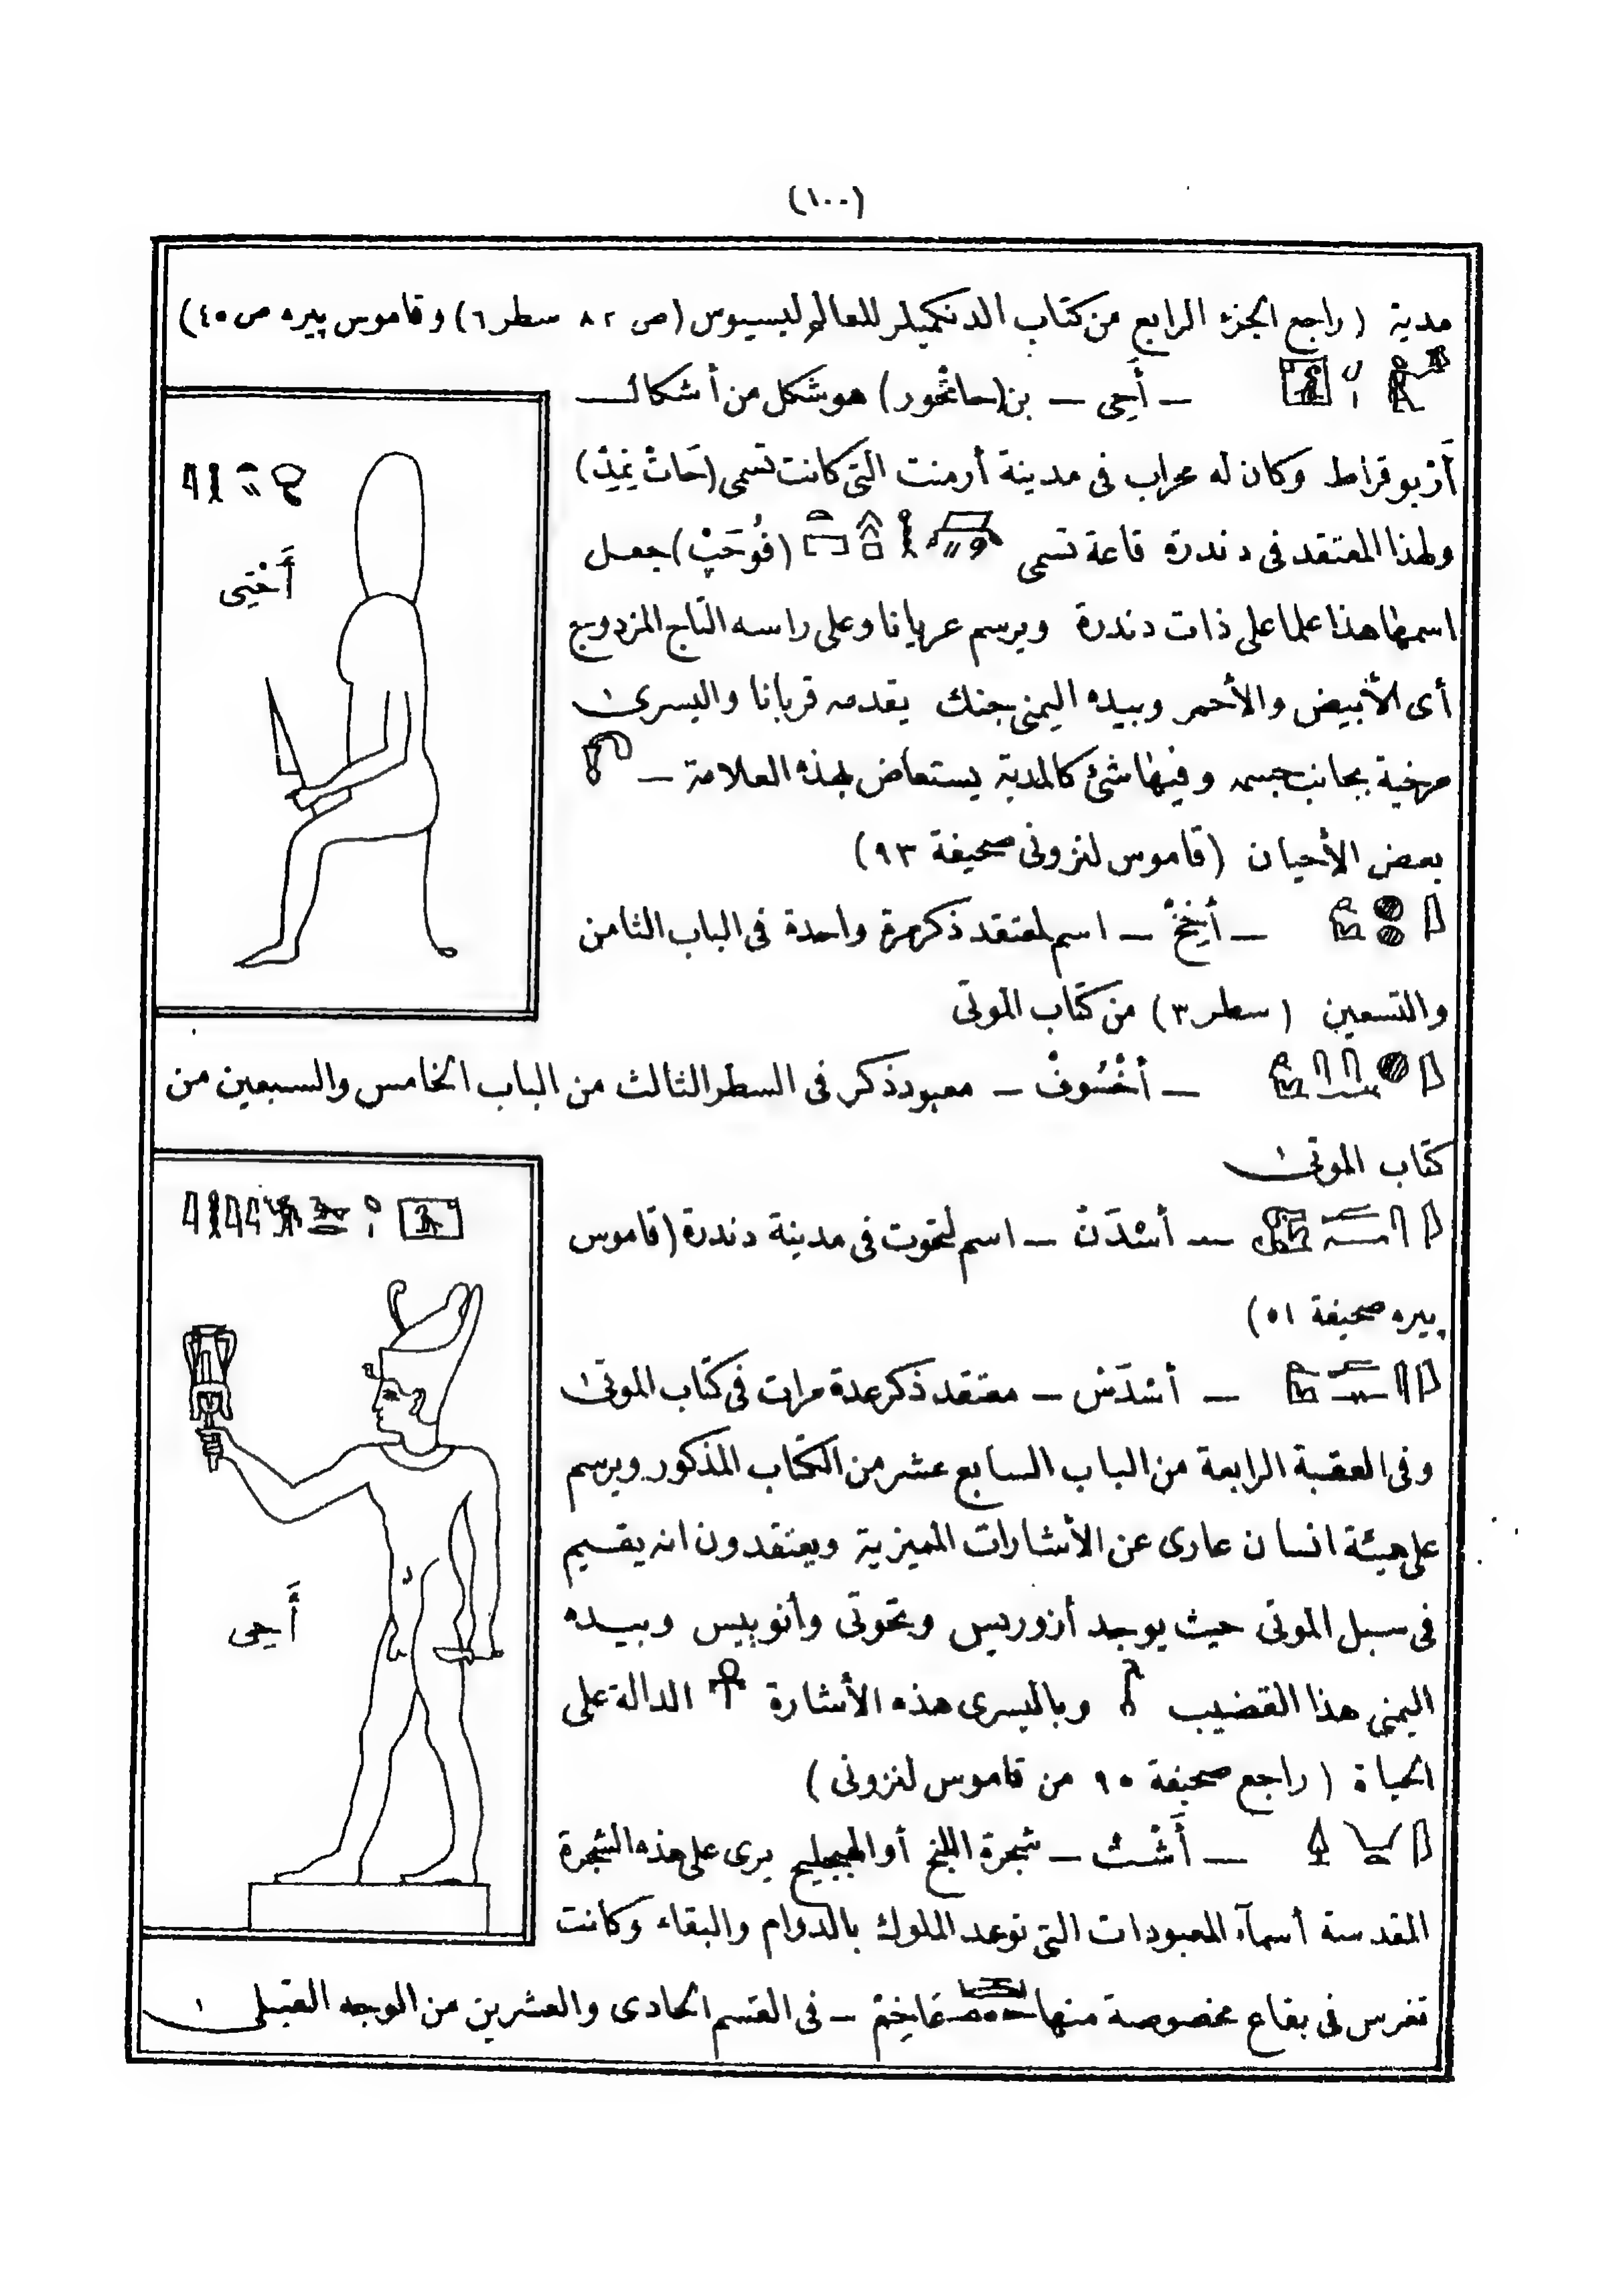 (١٠٠)
مدية (راجع الجزء الرابع من كتاب الدنكميلر للعالم ليسيوس (ص ٨٢ سطر ٦) وقاموس پيره ص ٤٥)
— أَحِى — بن (حاتحُور) هو شكل من أشكال
أَرْبوقراط وكان له محراب فى مدينة أرمنت التى كانت تسمى (حَاتْ)
ولهذا المعتقد فى دندرة قاعة تسمى (فُوحَبْ) جعل
اسمها هذا علما على ذات دندرة ويرسم عريانا وعلى راسه التاج المزدوج
أى الأبيض والأحمر وبيده اليمنى جنك يقدمه قربانا واليسرى
مرخية بجانب جسمه وفيها شئ كالمدية يستعاض بهذه العلامة —
بعض الأحيان (قاموس لنزونى صحيفة ٩٣)
— أَخِخْ — اسم لمعتقد ذكر مرة واحدة فى الباب الثامن
والتسعين (سطر ٣) من كتاب الموتى
— أَخْسُوفْ — معبود ذكر فى السطر الثالث من الباب الخامس والسبعين من
كتاب الموتى
— أسْدَنْ — اسم لتحوت فى مدينة دندرة (قاموس
پيره صحيفة ٥١)
— أسْدَسْ — معتقد ذكر عدة مرات فى كتاب الموتى
وفى العقبة الرابعة من الباب السابع عشر من الكتاب المذكور ويرسم
على هيئة انسان عارى عن الأشارات المميزية ويعتقدون انه يقسيم
فى سبل الموتى حيث يوجد أزوريس وتحوتى وأنوبيس وبيده
اليمنى هذا القضيب وباليسرى هذه الأشارة الدالة على
الحياة (راجع صحيفة ٩٥ من قاموس لنزونى)
— أَشْتْ — شجرة اللبخ أو الهجليج يرى على هذه الشجرة
المقدسة أسمآء المعبودات التى توعد الملوك بالدوام والبقاء وكانت
تغرس فى بقاع مخصوصة منها — فى القسم الحادى والعشرين من الوجه القبلى
أَخْتِى
أَحِى